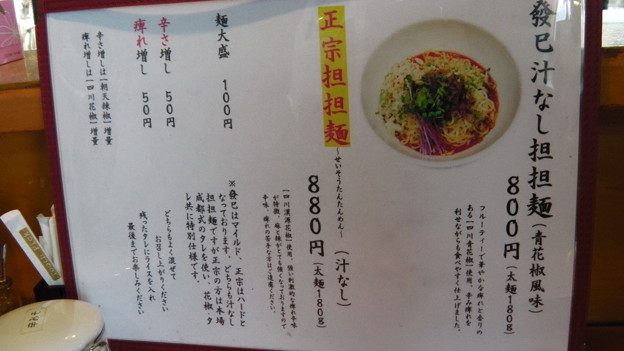 發巳汁なし担担麺(青花椒風味)
800円(太麺180g)
フルーティーで華やかな痺れと香りの
ある「四川青花椒」使用。辛み痺れを
利せながらも食べやすく仕上げました。
正宗担担麺
〜せいそうたんたんめん〜
(汁なし)
880円(太麺180g)
「四川漢源花椒」使用。強い刺激的な痺れ辛味
が特徴。麻と辣がとても強くなっておりますので
辛味、痺れの苦手な方はご遠慮ください。
※發巳はマイルド、正宗の方はハードと
なっております。どちらも汁なし
担担麺ですが正宗の方は本場
成都式のタレを使い、花椒・タ
レ共に特別仕様です。
どちらもよく混ぜて
お召し上がりください
残ったタレにライスを入れ
最後までお楽しみください
麺大盛 100円
辛さ増し 50円
痺れ増し 50円
辛さ増しは「朝天辣椒」増量
痺れ増しは「四川花椒」増量